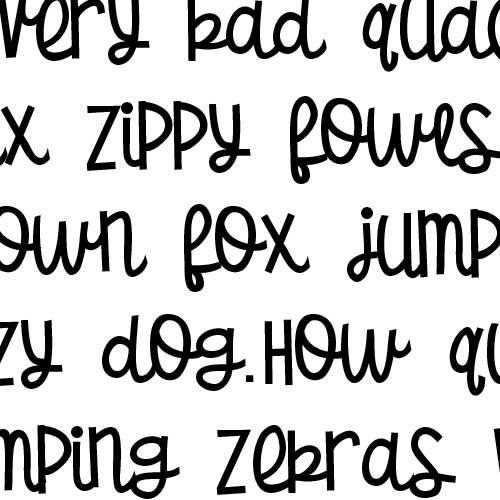 very bad quac
x zippy fowls
own fox jump
zy dog.How qu
mping zebras